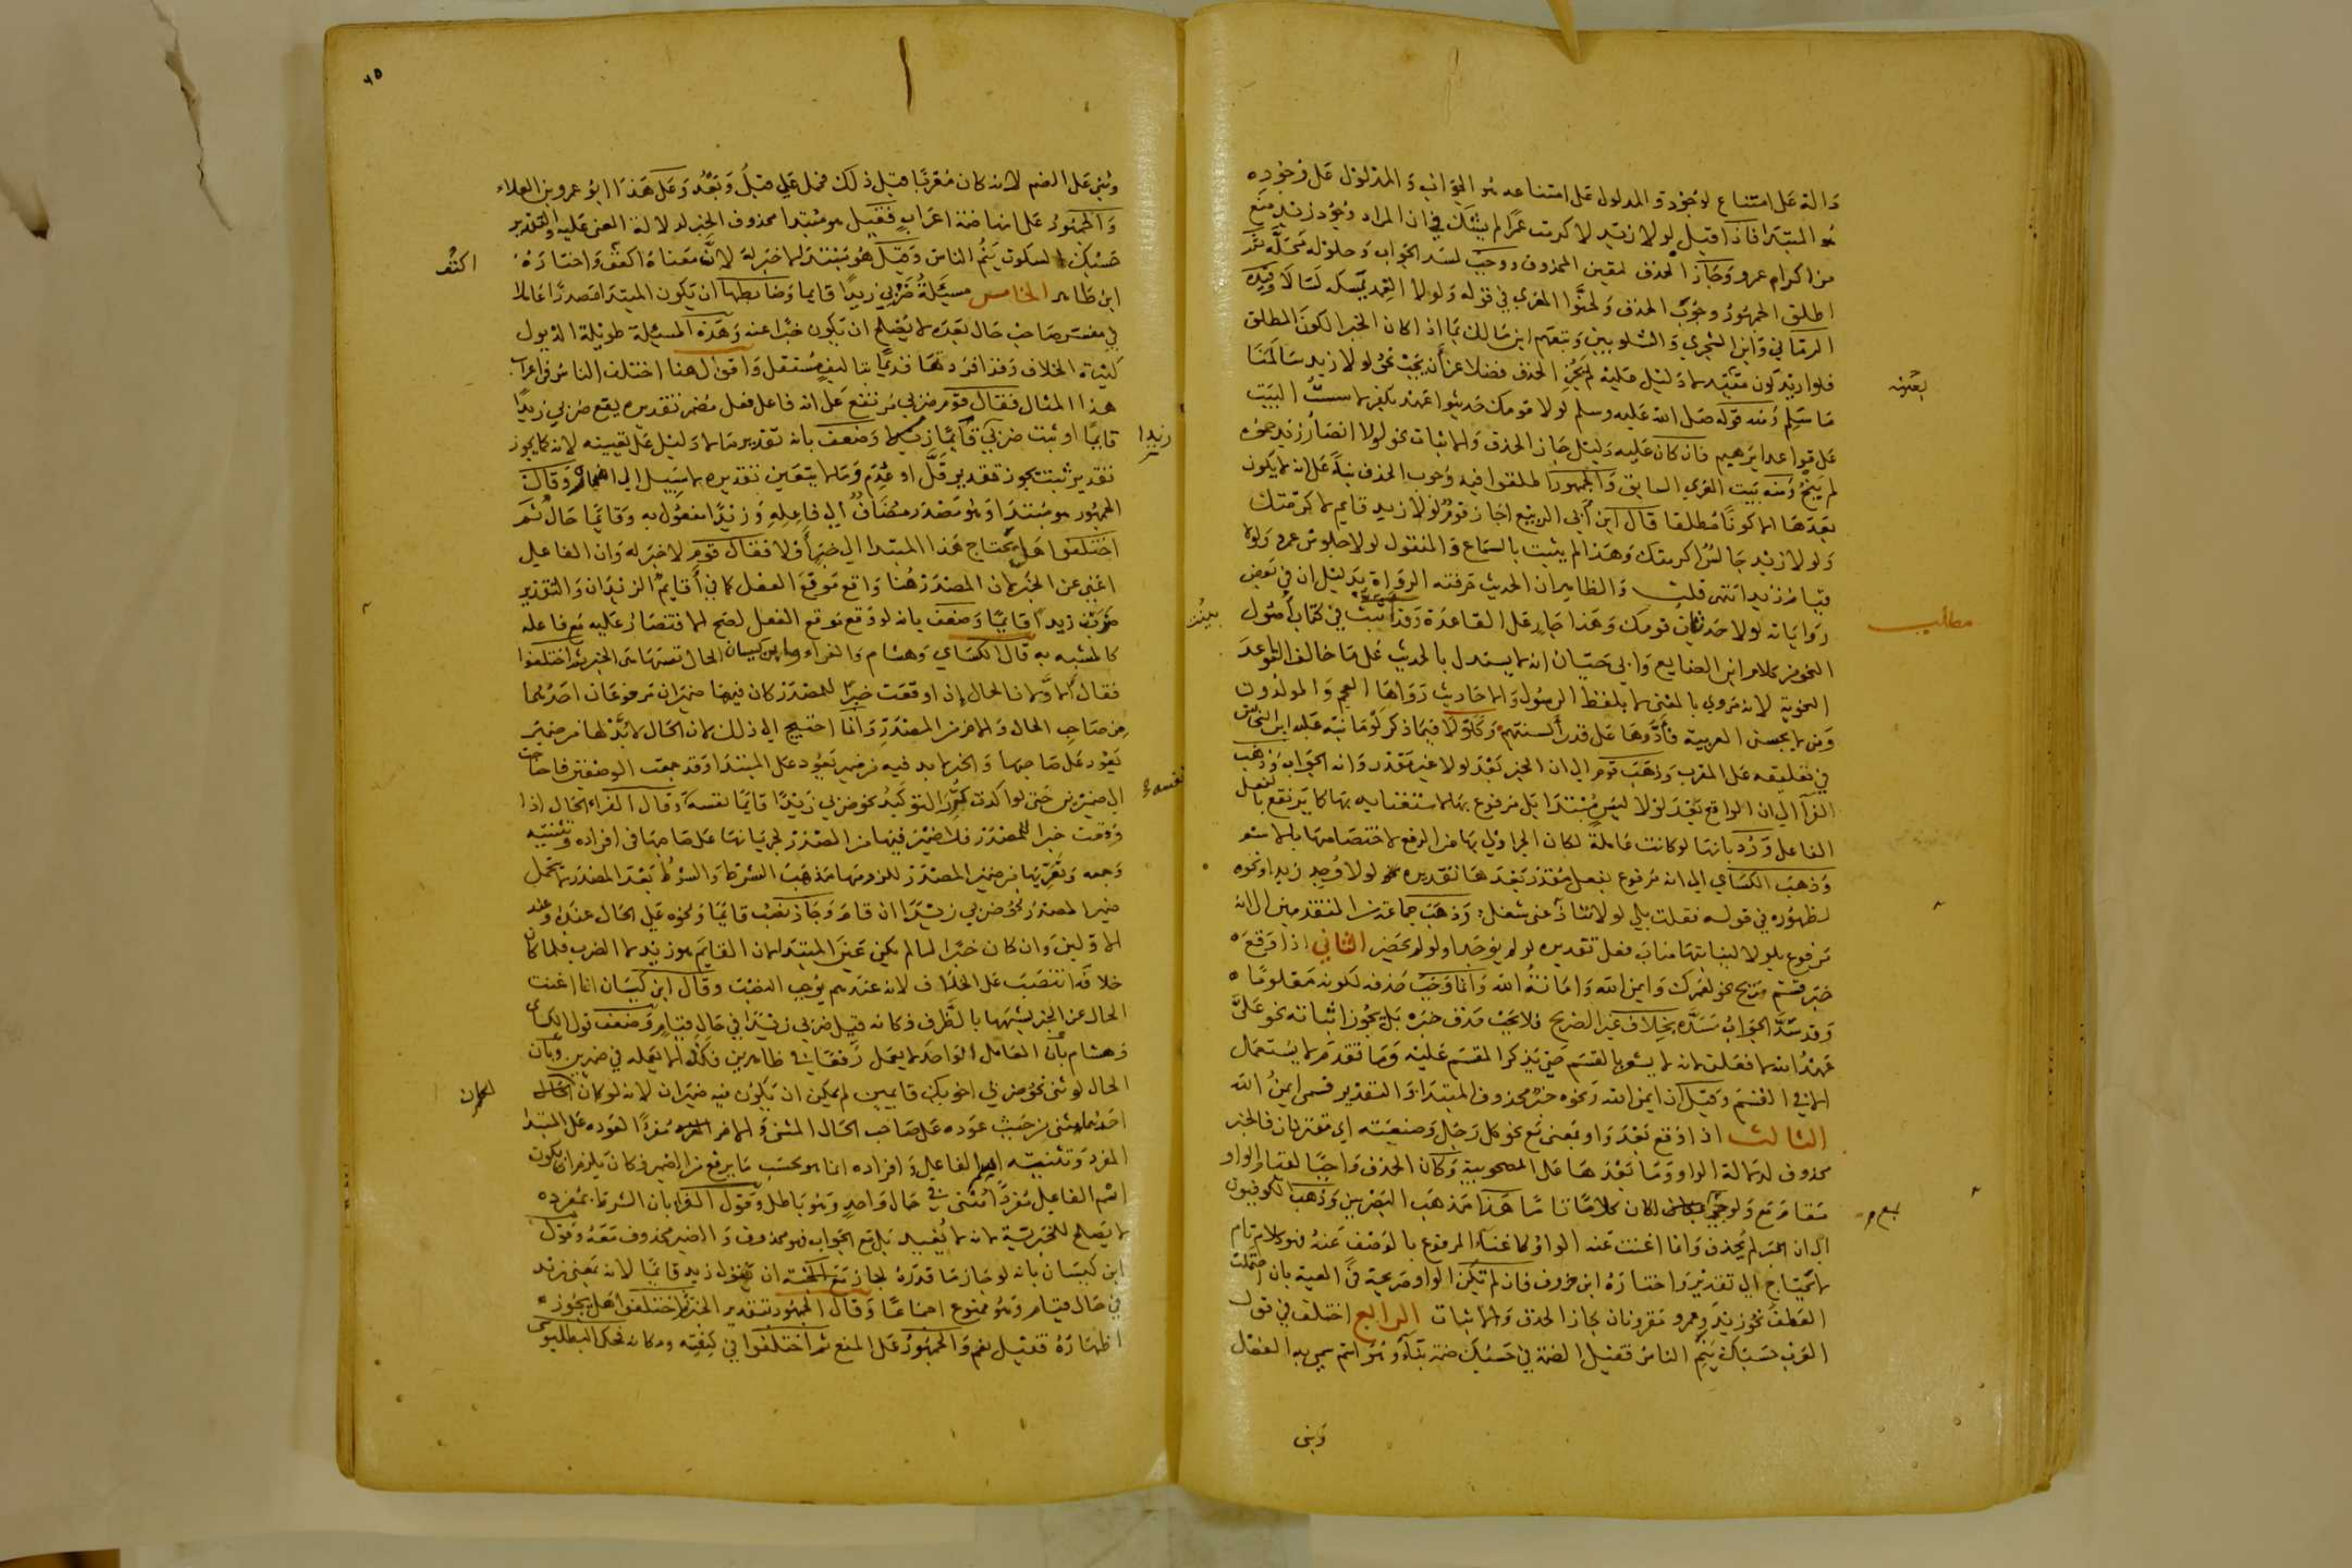 دالة على امتناع لوجود والمدلول على امتناعه هو الجواب والمدلول على وجوده
هو المبتدا فاذا قيل لولا زيد لاكرمت عمرا لم يشك في ان المراد وجود زيد منع
من اكرام عمرو وجاز الحذف لتعين المحذوف ووجب لسد الجواب وحلوله محله ثم
اطلق الجمهور وجوب الحذف ولحنوا المعري في قوله ولولا الغمد يمسكه لسالا وقيده
الرماني وابن الشجري والشلوبين وتبعهم ابن مالك بما اذا كان الخبر الكون المطلق
فلو اريد كون مقيد لا دليل عليه لم يجز الحذف فضلا عن أن يجب نحو لولا زيد سالمنا
ما سلم ومنه قوله صلى الله عليه وسلم لولا قومك حديثوا عهد بكفر لاسست البيت
على قواعد ابرهيم فان كان عليه دليل جاز الحذف والاثبات نحو لولا انصار زيد حموه
لم ينج ومنه بيت المعري السابق والجمهور اطلقوا فيه وجوب الحذف بناء على انه لا يكون
بعدها الا كونا مطلقا قال ابن أبي الربيع اجاز قوم لولا زيد قايم لاكرمتك
ولولا زيد جالس لاكرمتك وهذا لم يثبت بالسماع والمنقول لولا جلوس عمرو ولولا
قيام زيد انتهى قلت والظاهر ان الحديث حرفته الرواة بدليل ان في بعض
رواياته لولا حدثان قومك وهذا جار على القاعدة وقد بينت في كتاب أصول
النحو من كلام ابن الضايع وابي حيان انه لا يستدل بالحديث على ما خالف القواعد
النحوية لانه مروي بالمعنى لا بلفظ الرسول والاحاديث رواها العجم والمولدون
ومن لا يحسن العربية فأدوها على قدر ألسنتهم
في تعليقه على المقرب وذهب قوم الى ان الخبر بعد لولا غير مقدر وانه الجواب وذهب
الفرآ الى ان الواقع بعد لولا ليس مبتدا بل مرفوع بها لاستغنايه بها كما يرتفع بالفعل
الفاعل ورد بانها لو كانت عاملة لكان الجر اولى بها من الرفع لاختصاصها بالاسم
وذهب الكساي الى انه مرفوع بفعل مقدر بعدها تقديره لولا وجد زيد او نحوه
لظهوره في قوله فقلت بلى لولا ينازعني شغلي وذهب جماعة من المتقدمين الى انه
مرفوع بلولا لنيابتها مناب فعل تقديره لو لم يوجد او لو لم يحضر الثاني اذا وقع
خبر قسم صريح نحو لعمرك وايمن الله وامانة الله وانما وجب حذفه لكونه معلوما
وقد سد الجواب مسده بخلاف غير الصريح فلا يجب حذف خبره بل يجوز اثباته نحو على
عهد الله لافعلن لانه لا يشعر بالقسم حتى يذكر المقسم عليه وما تقدم لا يستعمل
الا في القسم وقيل ان ايمن الله ونحوه خبر محذوف المبتدا والتقدير قسمي ايمن الله
الثالث اذا وقع بعد واو بمعنى مع نحو كل رجل وضيعته اي مقترنان فالخبر
محذوف لدلالة الواو وما بعدها على المصحوبية وكان الحذف واجبا لقيام الواو
مقام مع ولو جيء بمع لكان كلاما تاما هذا مذهب البصريين وذهب الكوفيون
الى ان الخبر لم يحذف وانما اغنت عنه الواو كاغناء المرفوع بالوصف عنه فهو كلام تام
لا يحتاج الى تقدير واختاره ابن خروف فان لم تكن الواو صريحة في المعية بان احتملت
العطف نحو زيد وعمرو مقرونان جاز الحذف والاثبات الرابع اختلف في قول
العرب حسبك ينم الناس فقيل الضمة في حسبك ضمة بناء وهو اسم سمي به الفعل
وبنى
بعضه
مطلب
بينت
بمع
٤٥
وبني على الضم لانه كان معربا قبل ذلك فحمل على قبل وبعد وعلى هذا ابو عمرو بن العلاء
والجمهور على انها ضمة اعراب فقيل هو مبتدا محذوف الخبر لدلالة المعنى عليه والتقدير
حسبك السكوت ينم الناس وقيل هو مبتدا لا خبر له لان معناه اكفف واختاره
ابن طاهر الخامس مسئلة ضربي زيدا قايما وضابطها ان يكون المبتدا مصدرا عاملا
في مفسر صاحب حال بعده لا يصلح ان يكون خبرا عنه وهذه المسئلة طويلة الذيول
كثيرة الخلاف وقد افردتها قديما بتاليف مستقل واقول هنا اختلف الناس في اعراب
هذا المثال فقال قوم ضربي مرتفع على انه فاعل فعل مضمر تقديره يقع ضربي زيدا
قايما او ثبت ضربي زيدا قايما وضعف بانه تقدير ما لا دليل على تعيينه لانه كما يجوز
تقدير ثبت يجوز تقدير قل او عدم وما لا يتعين تقديره لا سبيل الى اضماره وقال
الجمهور هو مبتدا وهو مصدر مضاف الى فاعله وزيدا مفعول به وقايما حال ثم
اختلفوا هل يحتاج هذا المبتدا الى خبر أو لا فقال قوم لا خبر له وان الفاعل
اغنى عن الخبر لان المصدر هنا واقع موقع الفعل كما في أقايم الزيدان والتقدير
ضربت زيدا قايما وضعف بانه لو وقع موقع الفعل لصح الاقتصار عليه مع فاعله
كالمشبه به قال الكساي وهشام والفراء وابن كيسان الحال نفسها هي الخبر ثم اختلفوا
فقال الاولان الحال إذا وقعت خبرا للمصدر كان فيها ضميران مرفوعان احدهما
من صاحب الحال والاخر من المصدر وانما احتيج الى ذلك لان الحال لا بد لها من ضمير
يعود على صاحبها والخبر لا بد فيه من ضمير يعود على المبتدا وقد جمعت الوصفين فاحتاجت
الى ضميرين حتى لو اكدت كررت التوكيد نحو ضربي زيدا قايما نفسه وقال الفراء الحال اذا
وقعت خبرا للمصدر فلا ضمير فيها من المصدر لجريانها على صاحبها في افراده وتثنيته
وجمعه وتعريها من ضمير المصدر للزومها مذهب الشرط والشرط بعد المصدر لا يتحمل
ضمير المصدر نحو ضربي زيدا ان قام وجاز نصب قايما ونحوه على الحال عنده وعند
الاولين وان كان خبرا لما لم يكن عين المبتدا لان القايم هو زيد لا الضرب فلما كان
خلافه انتصب على الخلاف لانه عندهم يوجب النصب وقال ابن كيسان انما اغنت
الحال عن الخبر لشبهها بالظرف فكانه قيل ضربي زيدا في حال قيام وضعف قول الكساي
وهشام بان العامل الواحد لا يعمل رفعا في ظاهرين فكذا لا يعمله في ضميرين وبان
الحال لو ثنى نحو ضربي اخويك قايمين لم يمكن ان يكون فيه ضميران لانه لو كان لكان
احدهما مثنى من حيث عوده على صاحب الحال المثنى والاخر مفردا لعوده على المبتدا
المفرد وتثنية اسم الفاعل وافراده انما هو بحسب ما يرفع من الضمير فكان يلزم ان يكون
اسم الفاعل مفردا مثنى في حال واحد وهو باطل وقول الفرا بان الشرط بمفرده
لا يصلح للخبرية لانه لا يفيد بل مع الجواب فهو محذوف والضمير محذوف معه وقول
ابن كيسان بانه لو جاز ما قدره لجاز مع الجثة ان تقول زيد قائما لانه بمعنى زيد
في حال قيام وهو ممنوع اجماعا وقال الجمهور بتقدير الخبر ثم اختلفوا هل يجوز
اظهاره فقيل نعم والجمهور على المنع ثم اختلفوا في كيفيته ومكانه فحكى البطليوسي
اكفف
زيدا
نفسه
لكان